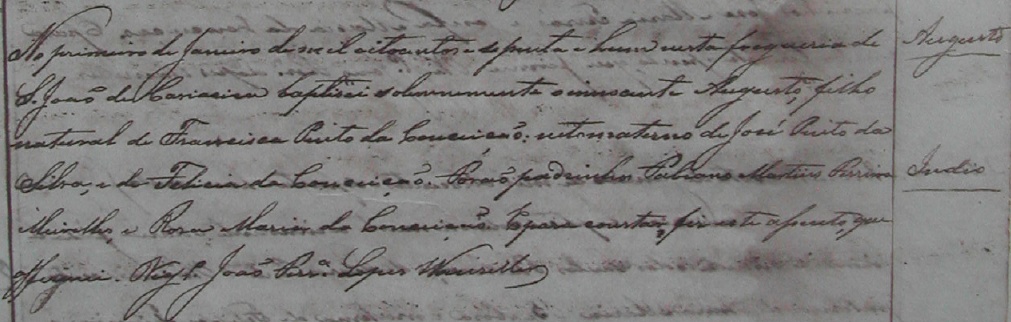 No primeiro de Janeiro de mil oitocentos e setenta e hum nesta freguezia de
S. João de Cariacica baptisei solemnemente o innocente Augusto, filho
natural de Francisca Pinto da Conceição: neto materno de José Pinto da
Silva, e de Felicia da Conceição. Forão padrinhos Fabiano Martins Pereira
Meirelles, e Rosa Maria da Conceição. E para constar, fiz este assento, que
assignei. João Lopes
Augusto
Indio